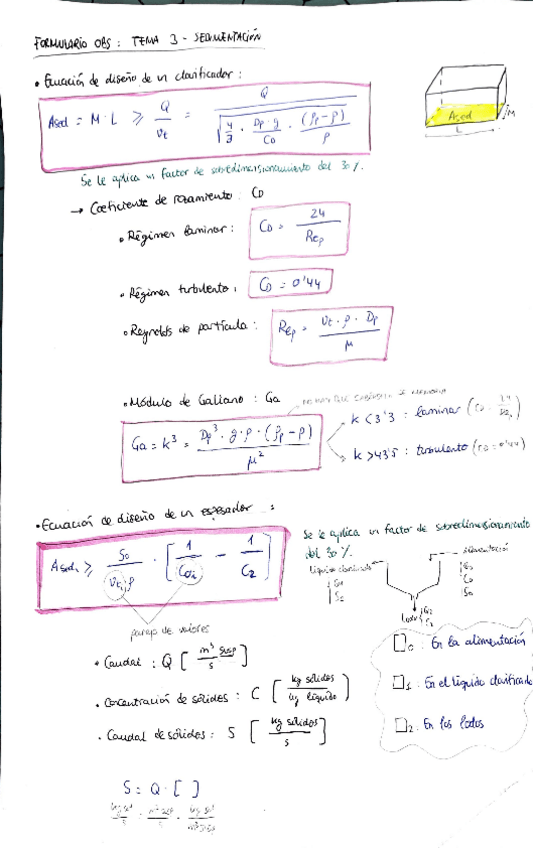 FORMULARIO OBS : TEMA 3 - SEDIMENTACIÓN
• Ecuación de diseño de un clarificador :
Ased = M · L ≥ Q / Vt = Q / √(4/3 · Dp · g / CD · (ρp - ρ) / ρ)
Ased
M
L
Se le aplica un factor de sobredimensionamiento del 30 %.
→ Coeficiente de rozamiento : CD
• Régimen laminar : CD = 24 / Rep
• Régimen turbulento : CD = 0'44
• Reynolds de partícula : Rep = Vt · ρ · Dp / μ
• Módulo de Galiano : Ga
Ga = k³ = Dp³ · g · ρ · (ρp - ρ) / μ²
k < 3'3 : laminar (CD = 24 / Rep)
k > 43'5 : turbulento (CD = 0'44)
• Ecuación de diseño de un espesador :
Ased,i ≥ S0 / Vti · ρ · [1 / C0i - 1 / C2]
pareja de valores
Se le aplica un factor de sobredimensionamiento
del 30 %.
líquido clarificado
alimentación
lodos
• Caudal : Q [m³ susp / s]
• Concentración de sólidos : C [kg sólidos / kg líquido]
• Caudal de sólidos : S [kg sólidos / s]
□0 : En la alimentación
□1 : En el líquido clarificado
□2 : En los lodos
S = Q · [ ]